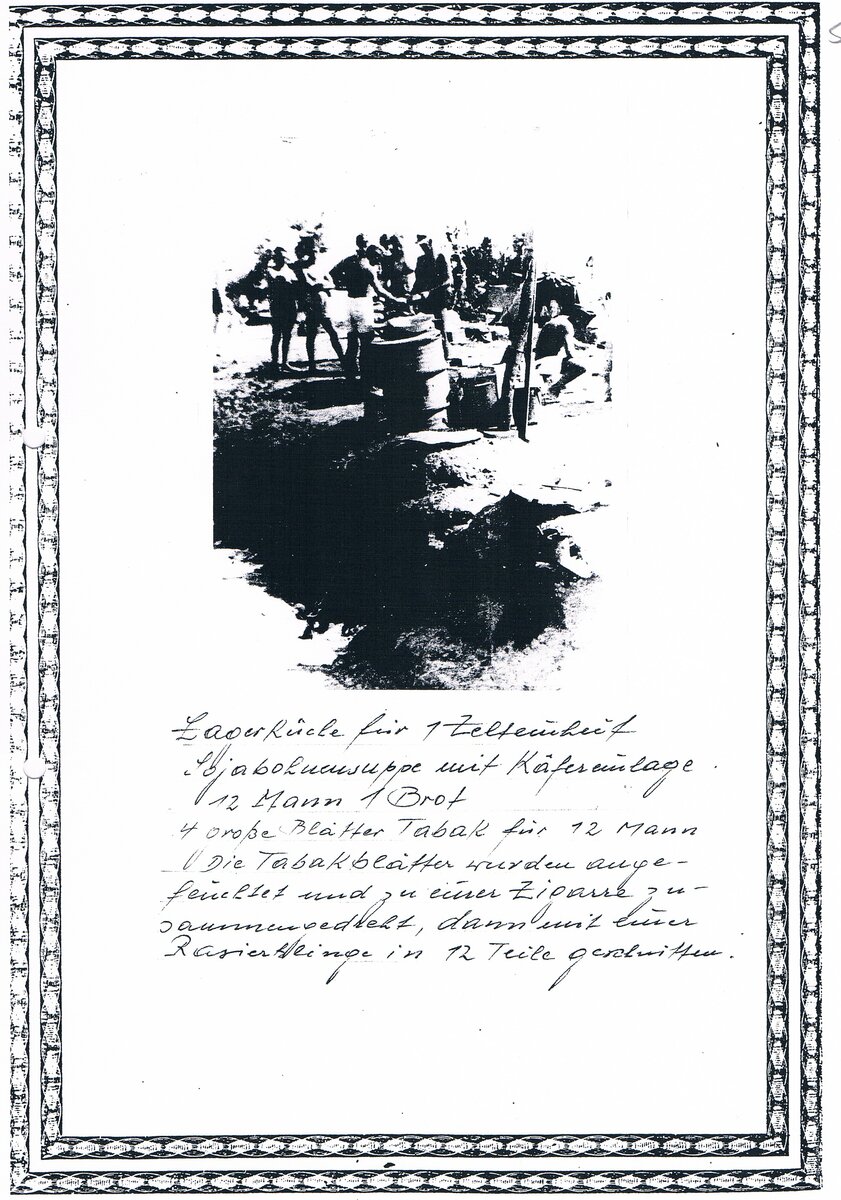 Lagerküche für 1 Zelteinheit
Sojabohnensuppe mit Käfereinlage.
12 Mann 1 Brot
4 große Blätter Tabak für 12 Mann
Die Tabakblätter wurden ange-
feuchtet und zu einer Zigarre zu-
sammengedreht, dann mit einer
Rasierklinge in 12 Teile geschnitten.